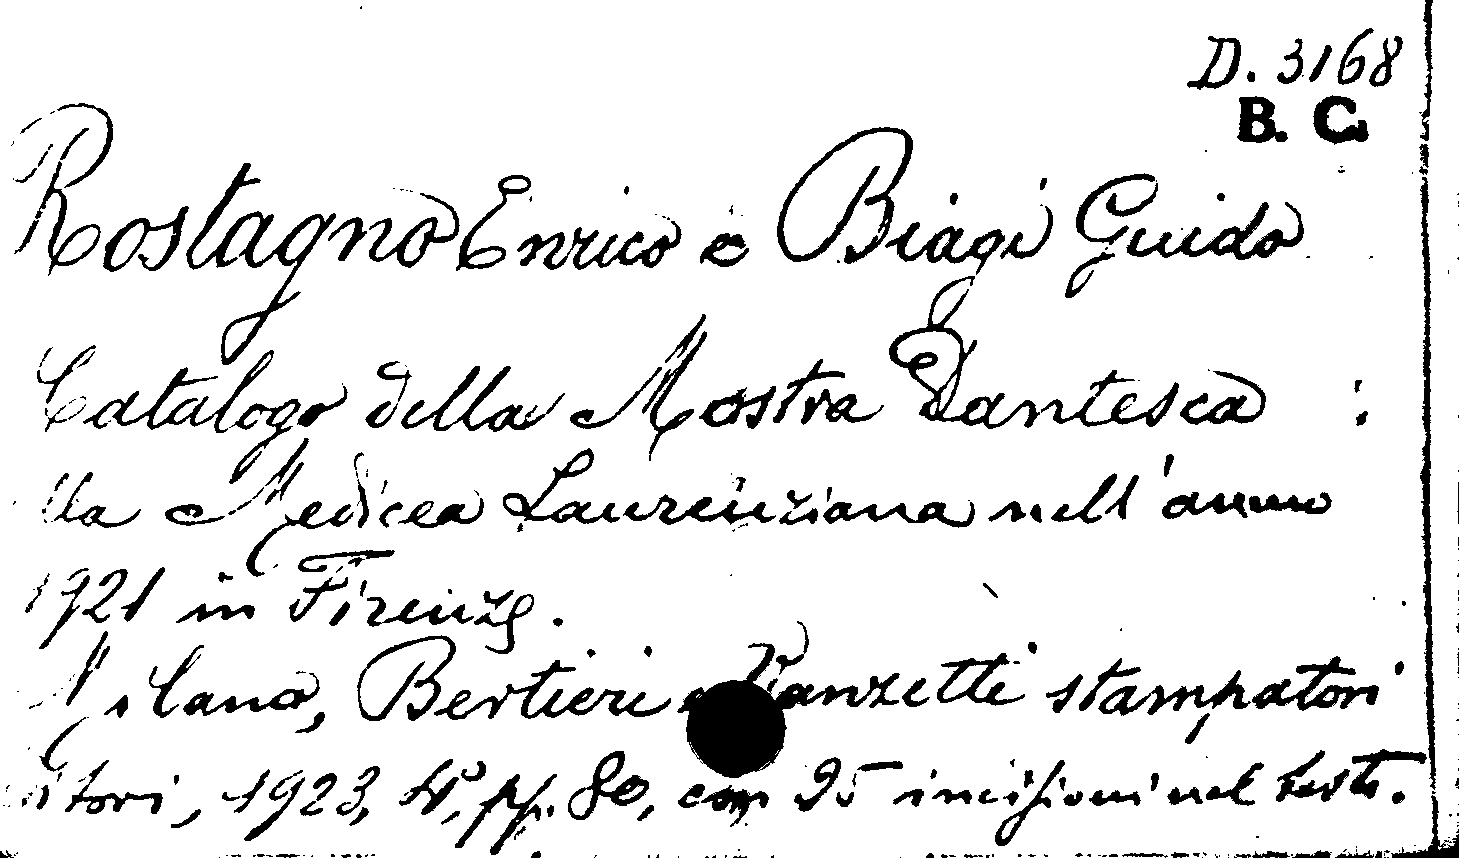 D. 3168
B. C.
Rostagno Enrico e Biagi Guido
Catalogo della Mostra Dantesca :
lla Medicea Laurenziana nell'anno
1921 in Firenze.
Milano, Bertieri e Vanzetti stampatori
itori, 1923, 4°, pp. 80, con 25 incisioni nel testo.